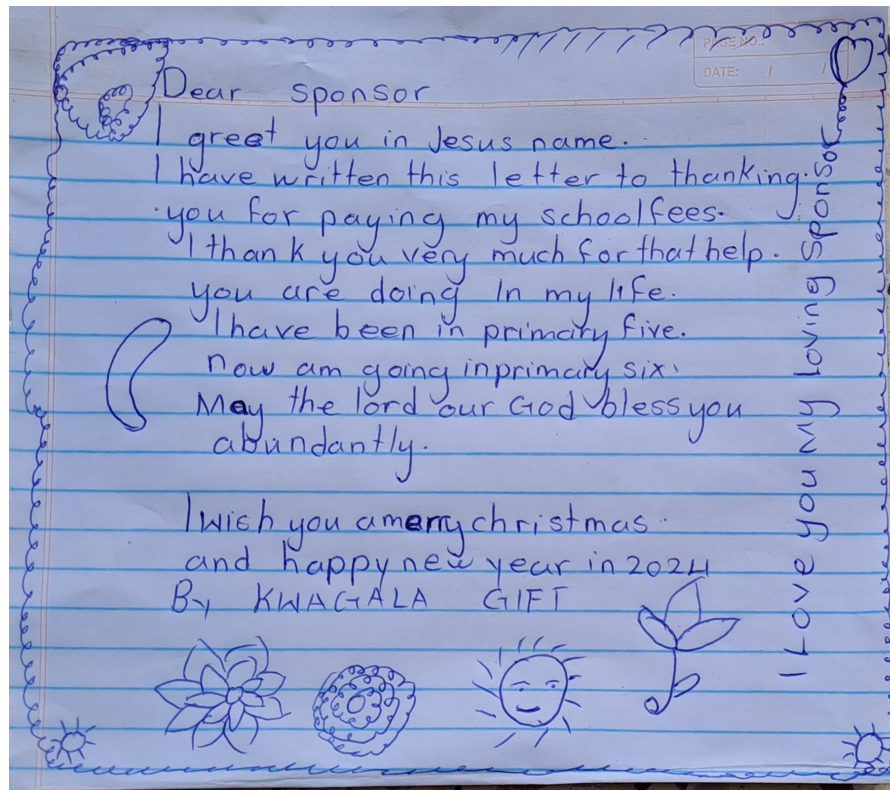 PAGE NO.:
DATE: / /
Dear sponsor
I greet you in Jesus name.
I have written this letter to thanking.
you for paying my schoolfees.
I thank you very much for that help.
you are doing In my life.
I have been in primary five.
now am going inprimary six.
May the lord our God bless you
abundantly.
I wish you amerry christmas.
and happy new year in 2024
By KWAGALA GIFT
I Love you My loving sponsor